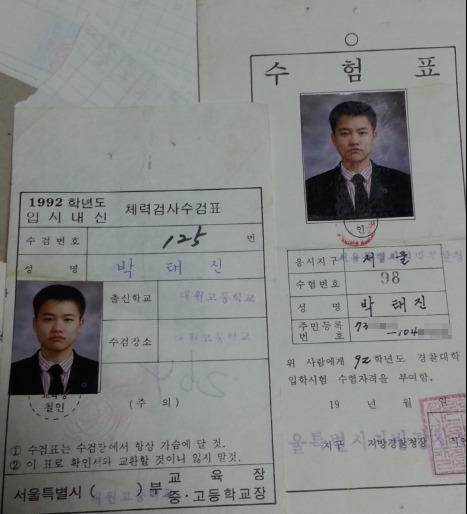 1992 학년도
입시내신 체력검사수검표
수검번호 125 번
성 명 박 태 진
출신학교 대원고등학교
수검장소 대원고등학교
철인
(주 의)
① 수검표는 수검장에서 항상 가슴에 달 것.
② 이 표로 확인서와 교환할 것이니 잃지 말것.
서울특별시 ( ) 부 교 육 장
중·고등학교장
수 험 표
인
응시지구 서울
수험번호 98
성 명 박 태 진
주민등록
번 호 73 -104
위 사람에게 92학년도 경찰대학
입학시험 수험자격을 부여함.
19 년 월 일
지구 지방경찰청장